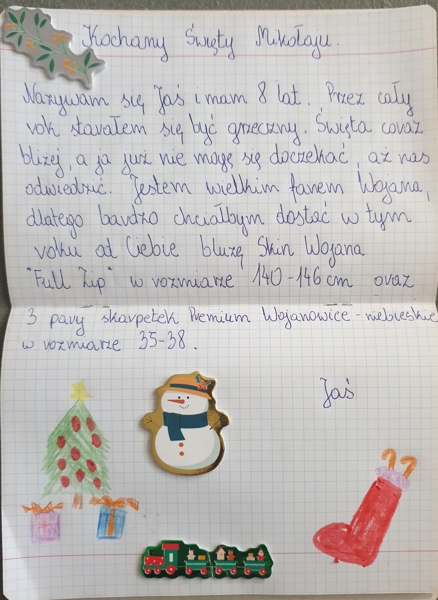 Kochany Święty Mikołaju.
Nazywam się Jaś i mam 8 lat. Przez cały
rok starałem się być grzeczny. Święta coraz
bliżej, a ja już nie mogę się doczekać, aż nas
odwiedzić. Jestem wielkim fanem Wojana,
dlatego bardzo chciałbym dostać w tym
roku od Ciebie bluzę Skin Wojana
"Full Zip" w rozmiarze 140-146 cm oraz
3 pary skarpetek Premium Wojanowice - niebieskie
w rozmiarze 35-38.
Jaś